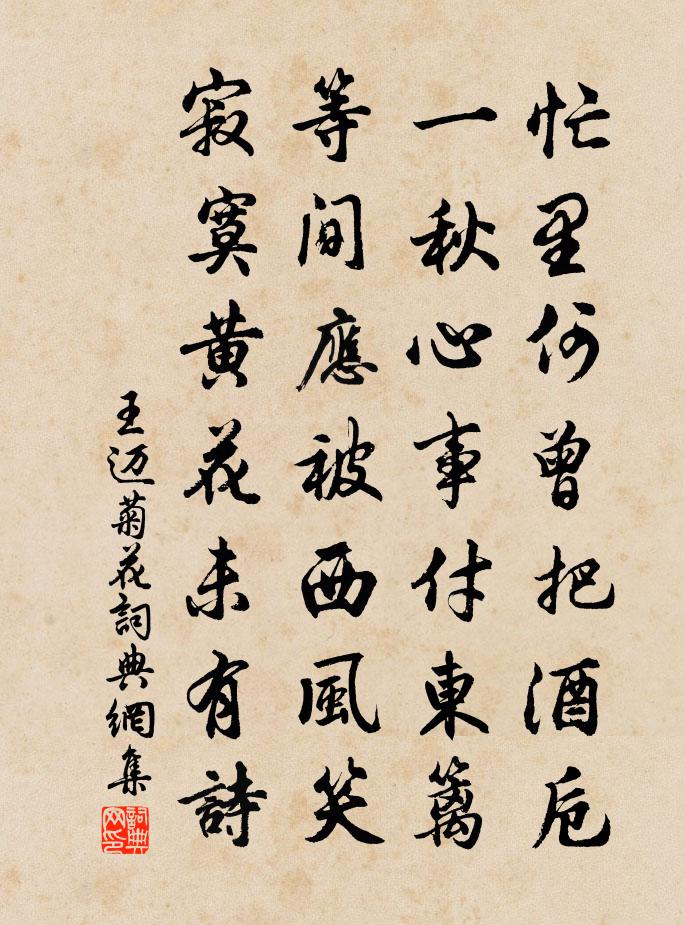 忙里何曾把酒卮
一秋心事付東籬
等間應被西風笑
寂寞黄花未有詩
王迈菊花詞典網集
詞典網印